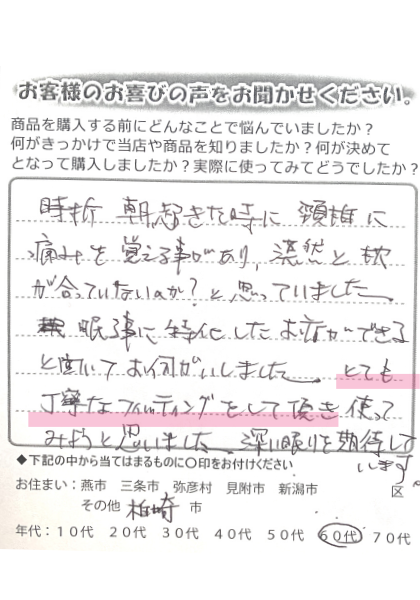 お客様のお喜びの声をお聞かせください。
商品を購入する前にどんなことで悩んでいましたか？
何がきっかけで当店や商品を知りましたか？何が決めて
となって購入しましたか？実際に使ってみてどうでしたか？
時折 朝起きた時に 頚椎に
痛みを覚える事があり、漠然と枕
が合っていないのか？と思っていました。
眠る事に特化したお店ができる
と聞いてお伺いしました。とても
丁寧なフィッティングをして頂き使って
みようと思いました。深い眠りを期待して
います。
◆下記の中から当てはまるものに〇印をお付けください
お住まい：燕市 三条市 弥彦村 見附市 新潟市 区
その他 柏崎 市
年代：１０代 ２０代 ３０代 ４０代 ５０代 ６０代 ７０代